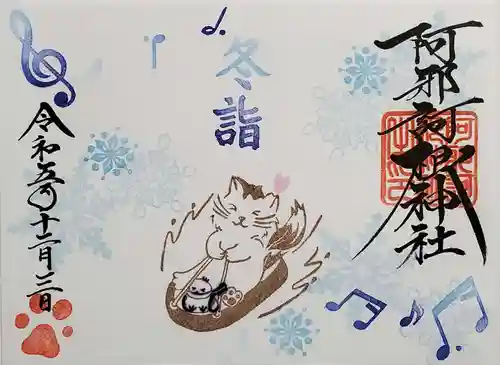 阿那訶根神社
冬詣
令和五年十二月三日